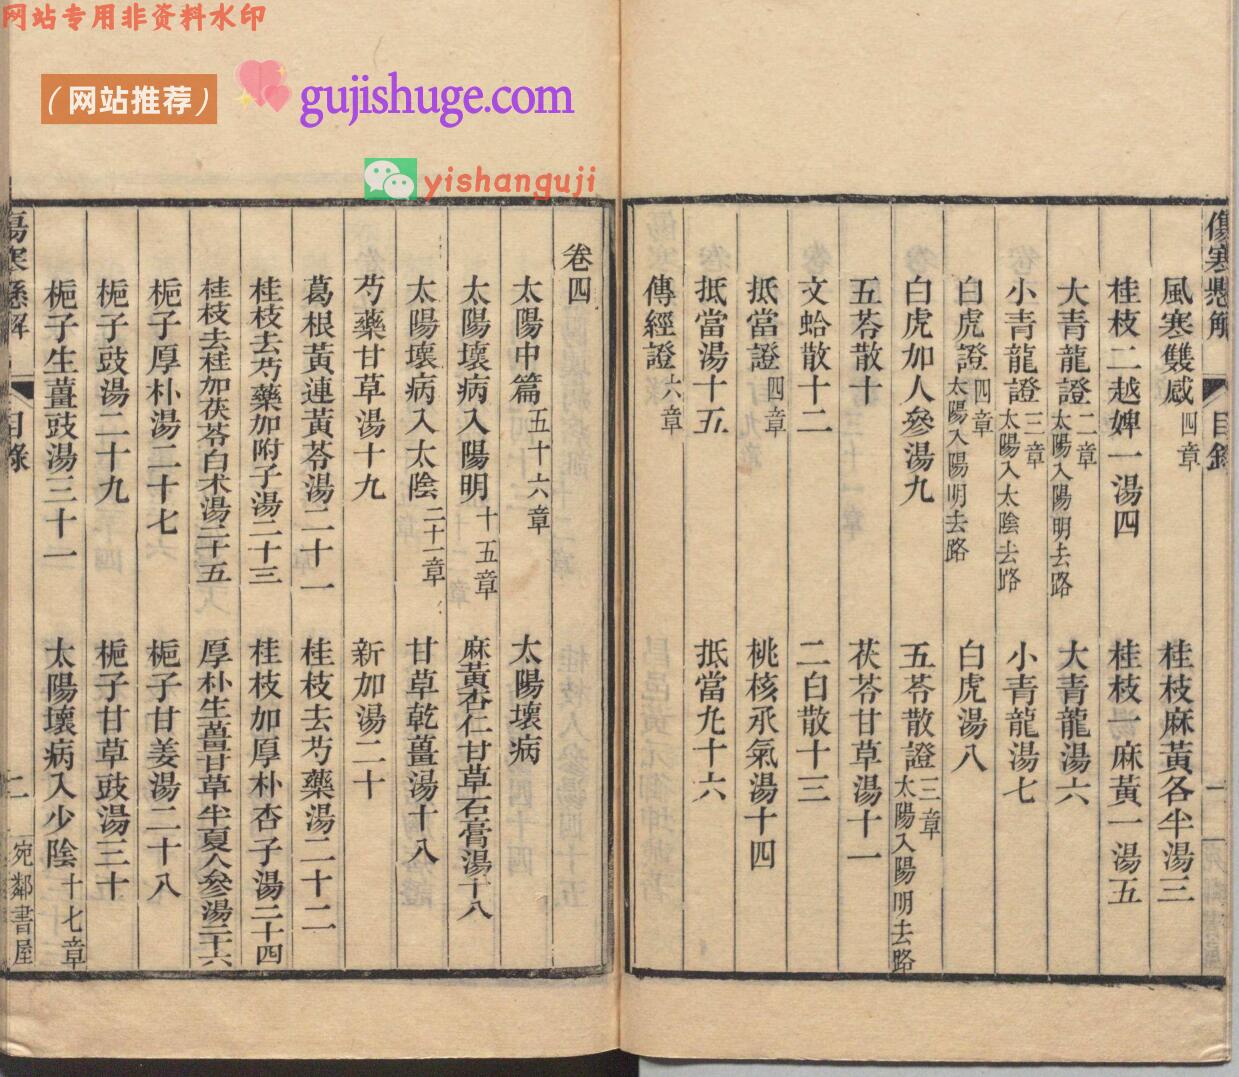 网站专用非资料水印
（网站推荐）
gujishuge.com
yishanguji
傷寒懸解
目錄
風寒雙感四章
桂枝麻黃各半湯三
桂枝二越婢一湯四
桂枝二麻黃一湯五
大青龍證二章太陽入陽明去路
大青龍湯六
小青龍證三章太陽入太陰去路
小青龍湯七
白虎證四章太陽入陽明去路
白虎湯八
白虎加人參湯九
五苓散證三章太陽入陽明去路
五苓散十
茯苓甘草湯十一
文蛤散十二
二白散十三
抵當證四章
桃核承氣湯十四
抵當湯十五
抵當九十六
傳經證六章
卷四
太陽中篇五十六章
太陽壞病
太陽壞病入陽明十五章
麻黃杏仁甘草石膏湯十八
太陽壞病入太陰二十一章
甘草乾薑湯十八
芍藥甘草湯十九
新加湯二十
葛根黃連黃芩湯二十一
桂枝去芍藥湯二十二
桂枝去芍藥加附子湯二十三
桂枝加厚朴杏子湯二十四
桂枝去桂加茯苓白术湯二十五
厚朴生薑甘草半夏人參湯二十六
梔子厚朴湯二十七
梔子甘姜湯二十八
梔子豉湯二十九
梔子甘草豉湯三十
梔子生薑豉湯三十一
太陽壞病入少陰十七章
傷寒懸解
目錄
二
宛鄰書屋